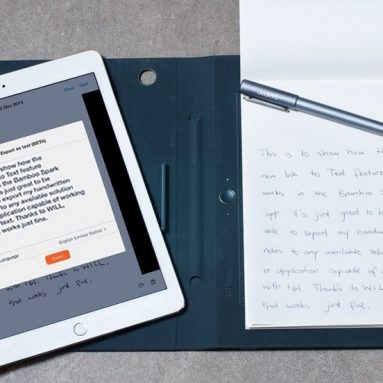 Dec 2015
Export as text (BETA)
to show how the
to Text feature
the Bamboo Spark
s just great to be
export my handwritten
to any available solution
application capable of working
text. Thanks to WILL,
works just fine.
Language
English (United States)
Export
with text. Thanks to WILL,
that works just fine.
This is to show how the
new Ink to Text feature
works in the Bamboo
app. It's just great to
able to export my handw
notes to any available
or application capable of
with text. Thanks to W
that works just fine.